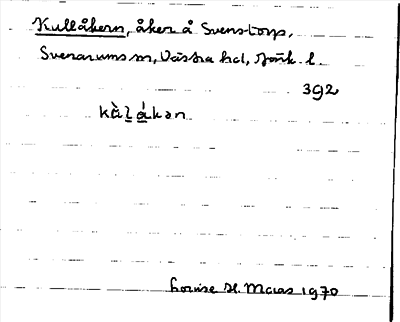 Kullåkern, åker å Svenstorp,
Svenarums sn, Västra hd, Jönk. l.
392
kàlákən
Louise H. Maras 1970